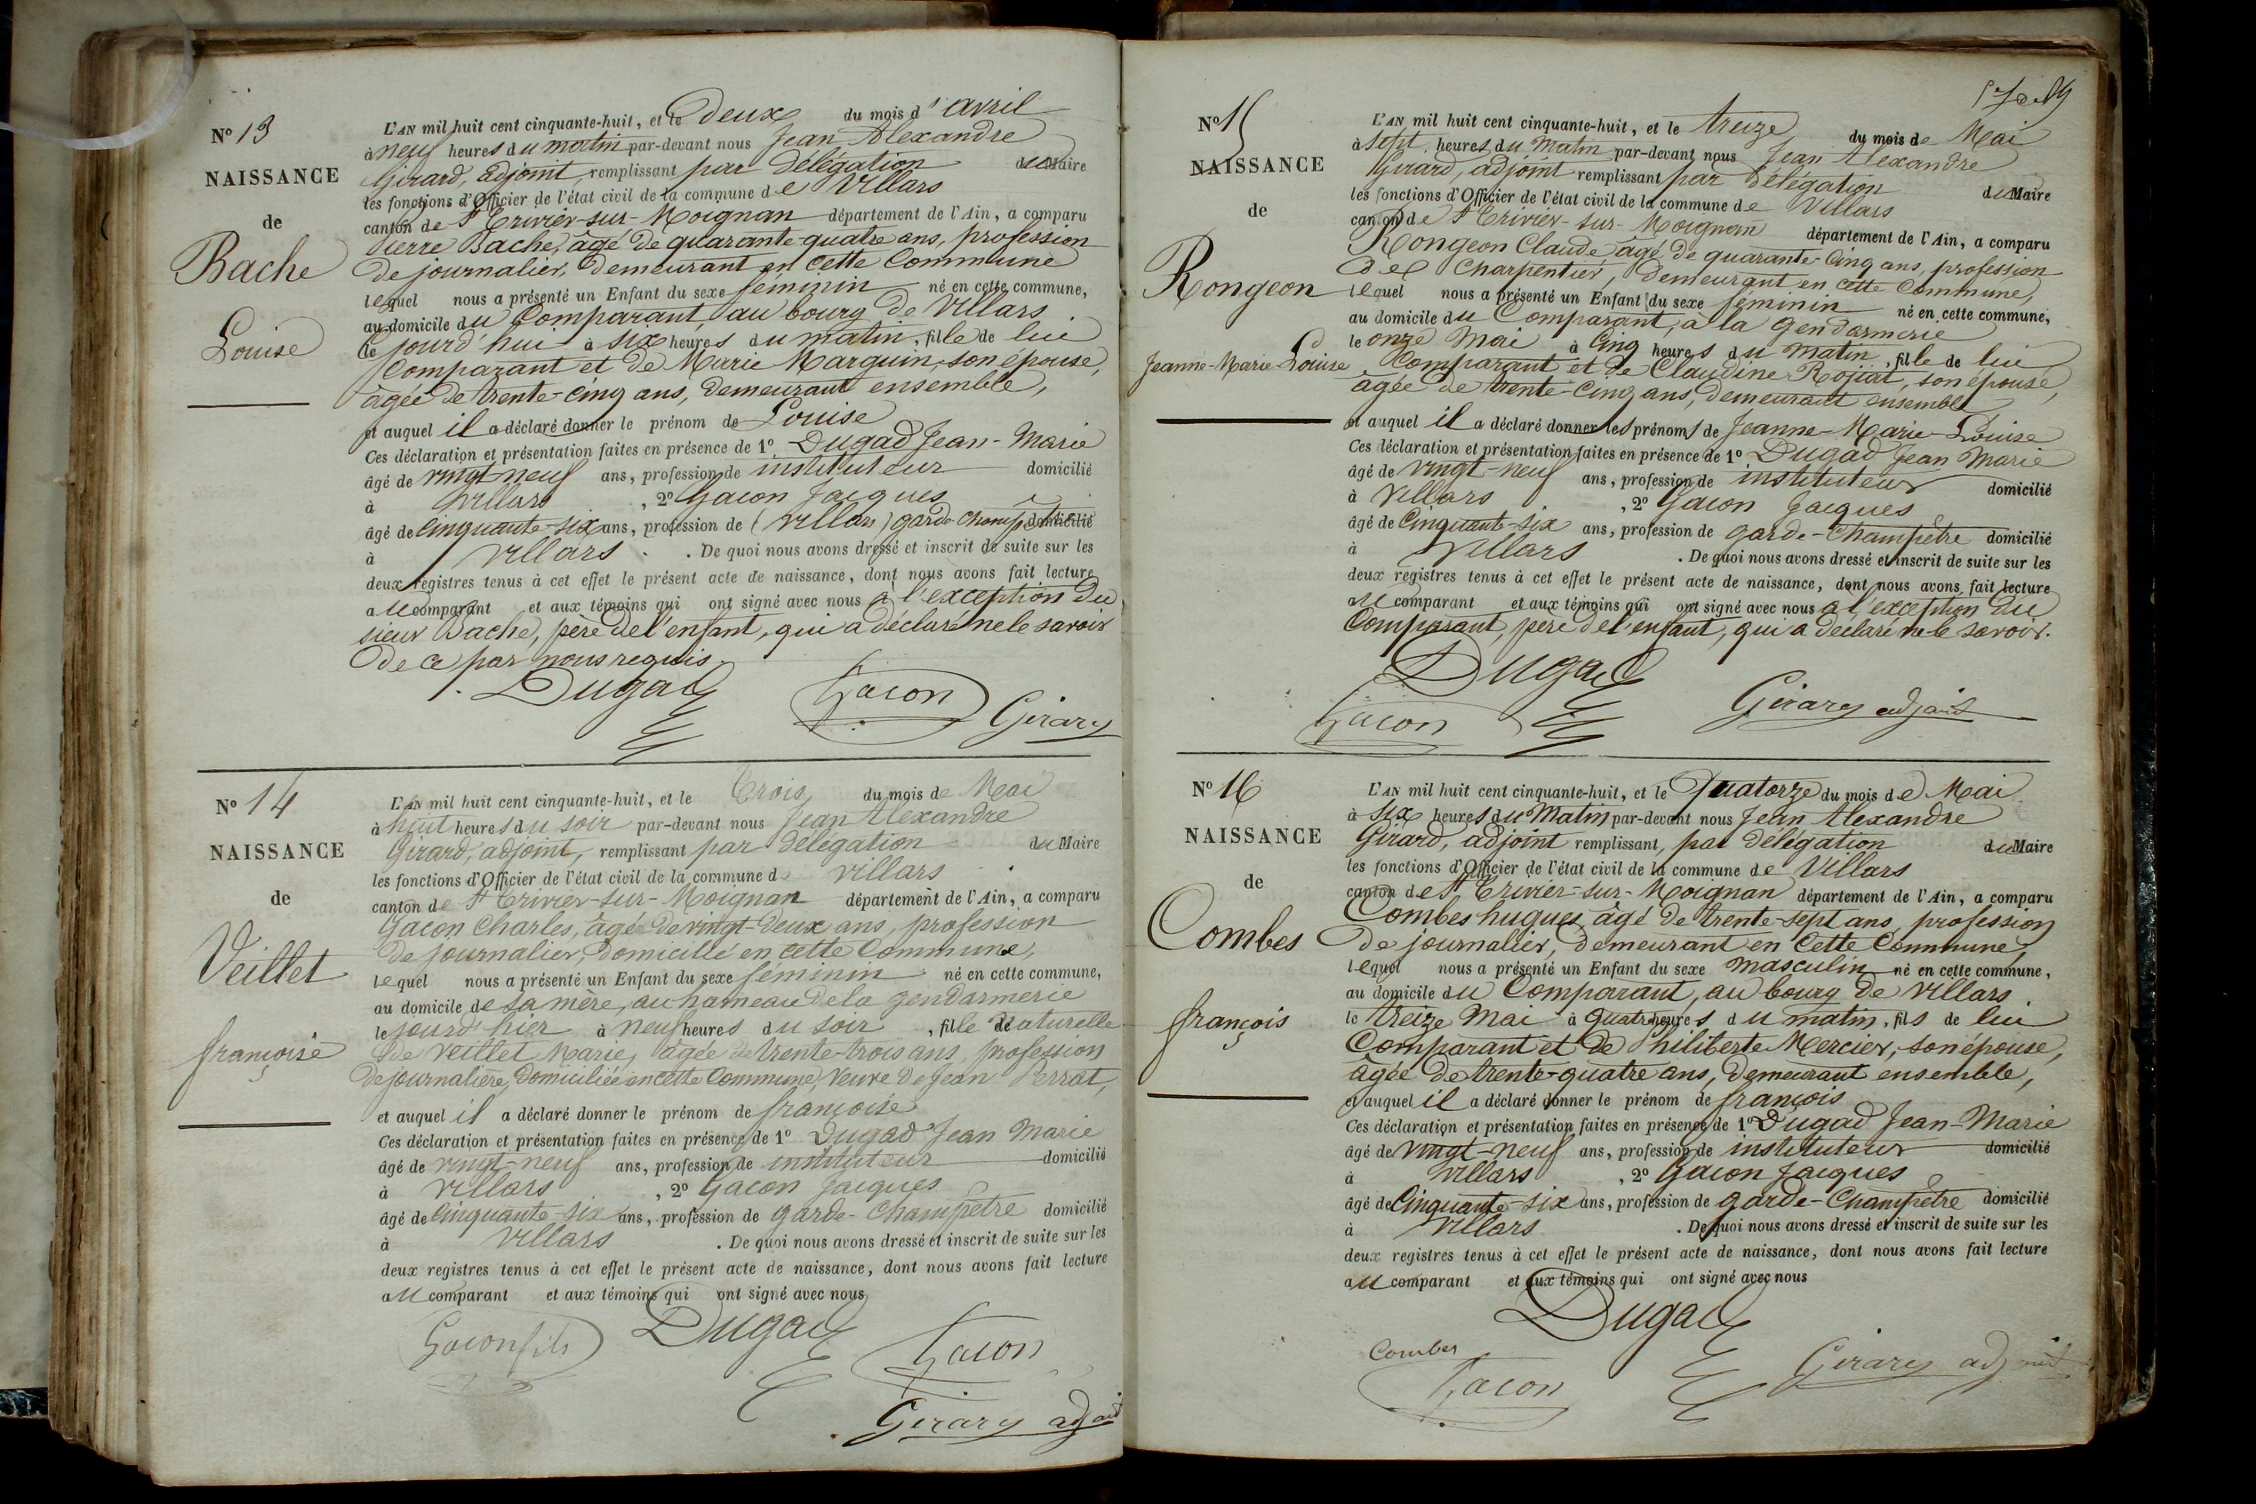 N° 13
NAISSANCE
de
Bache
Louise
L'AN mil huit cent cinquante-huit, et le deux du mois d'avril
à neuf heures du matin par-devant nous Jean Alexandre
Girard, adjoint, remplissant par délégation du Maire
les fonctions d'Officier de l'état civil de la commune de Villars
canton de St Trivier-sur-Moignan département de l'Ain, a comparu
Pierre Bache, âgé de quarante-quatre ans, profession
de journalier, demeurant en cette Commune
lequel nous a présenté un Enfant du sexe féminin né en cette commune,
au domicile du Comparant, au bourg de Villars
le jourd'hui à six heures du matin, fille de lui
Comparant et de Marie Marguin, son épouse,
âgée de trente-cinq ans, demeurant ensemble,
et auquel il a déclaré donner le prénom de Louise
Ces déclaration et présentation faites en présence de 1° Dugad Jean-Marie
âgé de vingt-neuf ans, profession de instituteur domicilié
à Villars, 2° Gacon Jacques
âgé de Cinquante-six ans, profession de (Villars) garde-champêtre domicilié
à Villars. De quoi nous avons dressé et inscrit de suite sur les
deux registres tenus à cet effet le présent acte de naissance, dont nous avons fait lecture
au comparant et aux témoins qui ont signé avec nous à l'exception du
sieur Bache, père de l'enfant, qui a déclaré ne le savoir
de ce par nous requis.
Dugad Gacon Girard
N° 14
NAISSANCE
de
Veillet
françoise
L'AN mil huit cent cinquante-huit, et le Trois du mois de Mai
à huit heures du soir par-devant nous Jean Alexandre
Girard, adjoint, remplissant par délégation du Maire
les fonctions d'Officier de l'état civil de la commune d Villars
canton de St Trivier-sur-Moignan département de l'Ain, a comparu
Gacon Charles, âgé de vingt-deux ans, profession
de journalier, domicilié en cette Commune,
lequel nous a présenté un Enfant du sexe féminin né en cette commune,
au domicile de sa mère, au hameau de la gendarmerie
le jourd'hier à neuf heures du soir, fille naturelle
de Veillet Marie, âgée de trente-trois ans, profession
de journalière, domiciliée en cette Commune, Veuve de Jean Perrat,
et auquel il a déclaré donner le prénom de françoise
Ces déclaration et présentation faites en présence de 1° Dugad Jean Marie
âgé de vingt-neuf ans, profession de instituteur domicilié
à Villars, 2° Gacon Jacques
âgé de Cinquante-six ans, profession de garde-Champêtre domicilié
à Villars. De quoi nous avons dressé et inscrit de suite sur les
deux registres tenus à cet effet le présent acte de naissance, dont nous avons fait lecture
au comparant et aux témoins qui ont signé avec nous
Gacon fils Dugad Gacon
Girard adjoint
N° 15
NAISSANCE
de
Rongeon
Jeanne-Marie-Louise
L'AN mil huit cent cinquante-huit, et le treize du mois de Mai
à sept heures du Matin par-devant nous Jean Alexandre
Girard, adjoint remplissant par délégation du Maire
les fonctions d'Officier de l'état civil de la commune de Villars
canton de St Trivier-sur-Moignan département de l'Ain, a comparu
Rongeon Claude âgé de quarante-Cinq ans, profession
de Charpentier, demeurant en cette Commune,
lequel nous a présenté un Enfant du sexe féminin né en cette commune,
au domicile du Comparant, à la gendarmerie
le onze Mai à Cinq heures du Matin, fille de lui
Comparant et de Claudine Rojiat, son épouse,
âgée de trente-Cinq ans, demeurant ensemble
et auquel il a déclaré donner les prénoms de Jeanne-Marie-Louise
Ces déclaration et présentation faites en présence de 1° Dugad Jean Marie
âgé de vingt-neuf ans, profession de instituteur domicilié
à Villars, 2° Gacon Jacques
âgé de Cinquante-six ans, profession de garde-Champêtre domicilié
à Villars. De quoi nous avons dressé et inscrit de suite sur les
deux registres tenus à cet effet le présent acte de naissance, dont nous avons fait lecture
au comparant et aux témoins qui ont signé avec nous à l'exception du
Comparant, père de l'enfant, qui a déclaré ne le savoir.
Dugad
Gacon Girard adjoint
N° 16
NAISSANCE
de
Combes
françois
L'AN mil huit cent cinquante-huit, et le Quatorze du mois de Mai
à six heures du Matin par-devant nous Jean Alexandre
Girard, adjoint remplissant, par délégation du Maire
les fonctions d'Officier de l'état civil de la commune de Villars
canton de St Trivier-sur-Moignan département de l'Ain, a comparu
Combes hugues, âgé de trente-sept ans, profession
de journalier, demeurant en cette Commune,
lequel nous a présenté un Enfant du sexe masculin né en cette commune,
au domicile du Comparant, au bourg de Villars
le treize Mai à quatre heures du matin, fils de lui
Comparant et de Philiberte Mercier, son épouse,
âgée de trente-quatre ans, demeurant ensemble,
et auquel il a déclaré donner le prénom de françois
Ces déclaration et présentation faites en présence de 1° Dugad Jean-Marie
âgé de vingt-neuf ans, profession de instituteur domicilié
à Villars, 2° Gacon Jacques
âgé de Cinquante-six ans, profession de garde-Champêtre domicilié
à Villars. De quoi nous avons dressé et inscrit de suite sur les
deux registres tenus à cet effet le présent acte de naissance, dont nous avons fait lecture
au comparant et aux témoins qui ont signé avec nous
Dugad
Combes
Gacon Girard adjoint